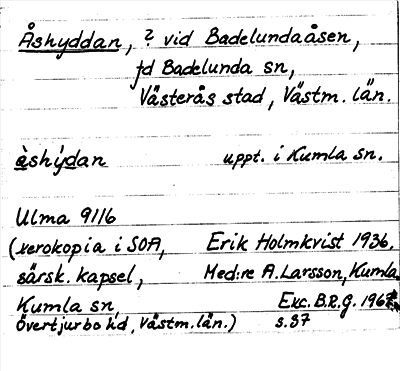 Åshyddan, ? vid Badelundaåsen,
fd Badelunda sn,
Västerås stad, Västm. län.
åshýdan uppt. i Kumla sn.
Ulma 91:6
(xerokopia i SOA, Erik Holmkvist 1936.
särsk. kapsel, Med:re A. Larsson, Kumla
Kumla sn, Exc. B.R.G. 1967
Övertjurbo hd, Västm. län.) s. 37